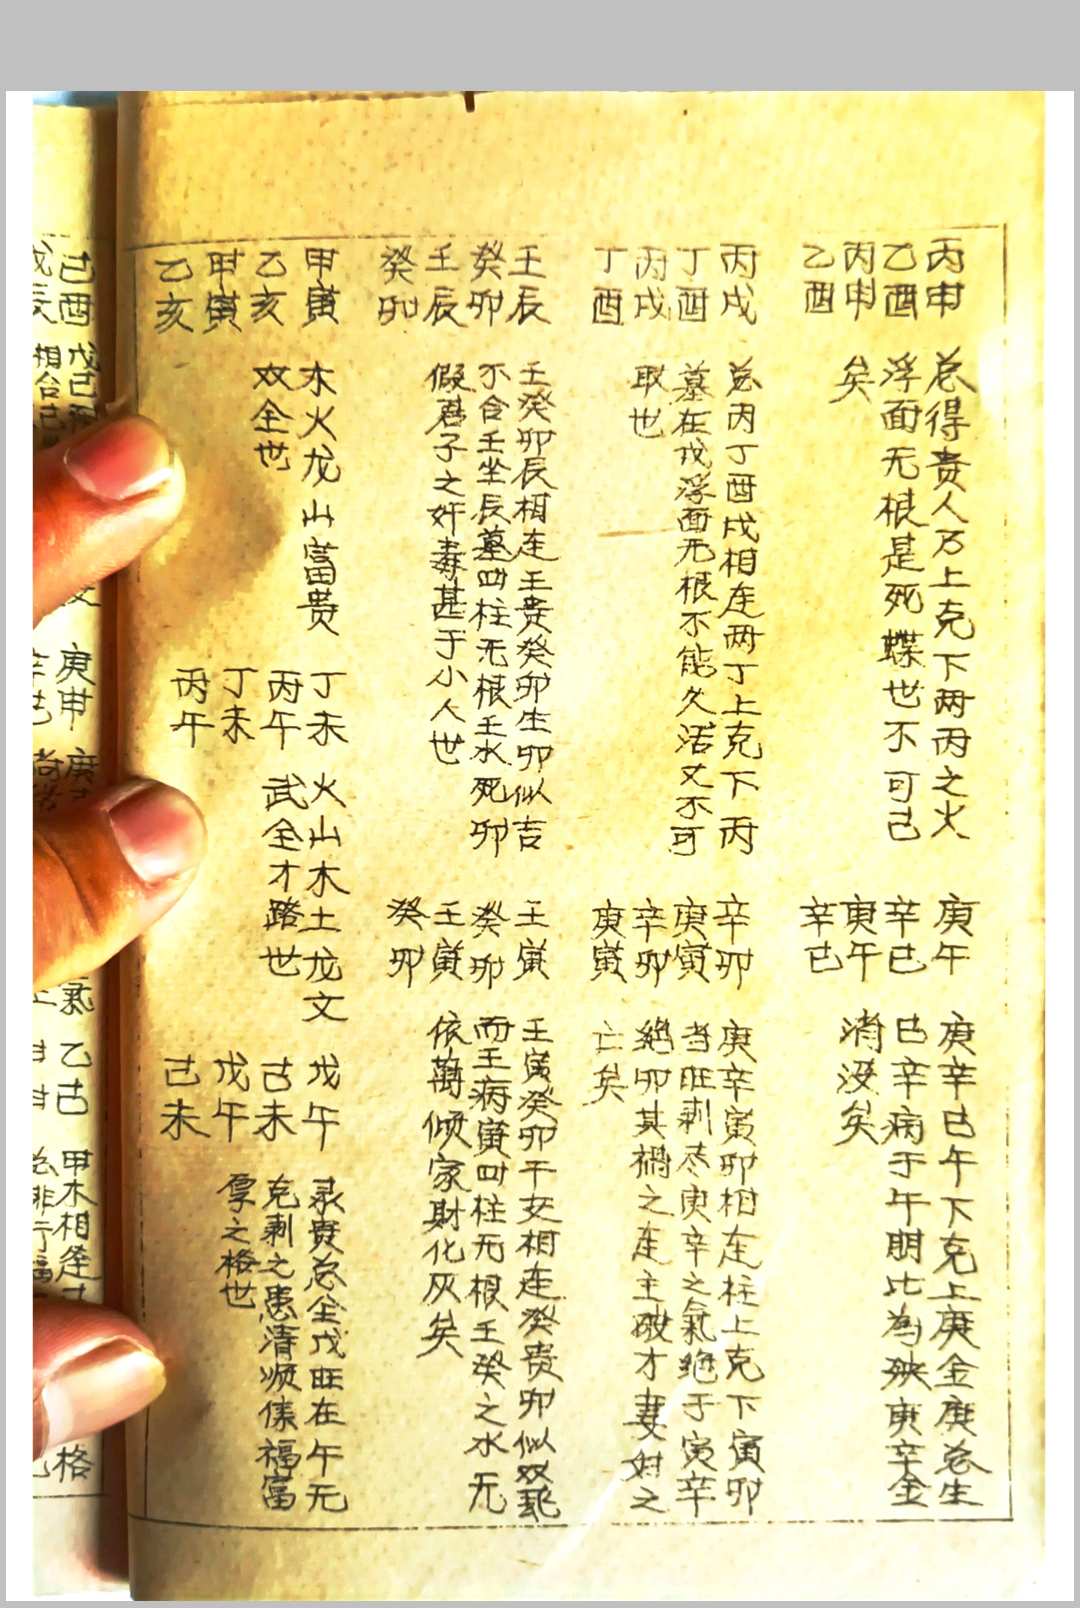 丙申
乙酉
丙申
乙酉
总得贵人乃上克下两丙之火
浮面无根是死蝶也不可己
矣
庚午
辛巳
庚午
辛巳
庚辛巳午下克上庚金庚总生
巳辛病于午朋比為殃庚辛金
消没矣
丙戌
丁酉
丙戌
丁酉
总丙丁酉戌相连两丁上克下丙
墓在戌浮面无根不能久活又不可
取也
辛卯
庚寅
辛卯
庚寅
庚辛寅卯相连柱上克下寅卯
当旺剥尽庚辛之氣絶于寅辛
絶卯其禍之连主破才妻对之
亡矣
壬辰
癸卯
壬辰
癸卯
壬癸卯辰相连壬贵癸卯生卯似吉
不合壬坐辰墓四柱无根壬水死卯
假君子之奸毒甚于小人也
壬寅
癸卯
壬寅
癸卯
壬寅癸卯干支相连癸贵卯似双
而壬病寅四柱无根壬癸之水无
依萬倾家財化灰矣
甲寅
乙亥
甲寅
乙亥
木火龙山富贵
双全也
丁未
丙午
丁未
丙午
火山木土龙文
武全才路也
戊午
己未
戊午
己未
录贵总全戊旺在午无
克剥之患清顺傣福富
厚之格也
己酉
戊辰
戊己
相合己
庚申
辛巳
庚
氣
乙古
甲木相逢
总非行福
格